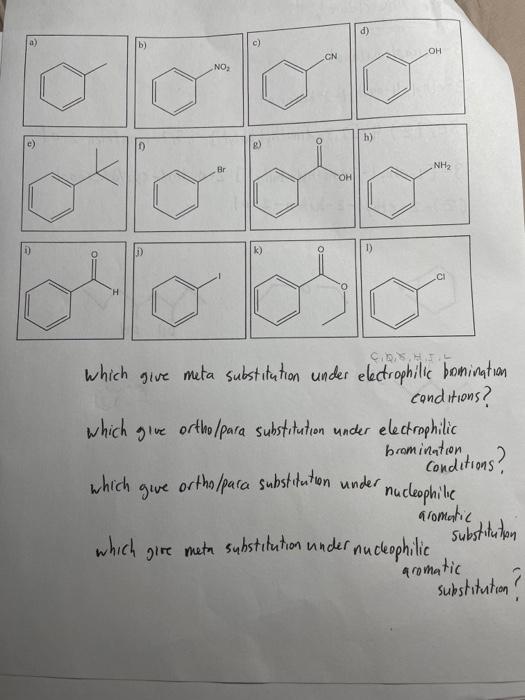 a)
b)
NO₂
c)
CN
d)
OH
e)
f)
Br
g)
O
OH
h)
NH₂
i)
O
H
j)
I
k)
O
O
l)
Cl
which give meta substitution under electrophilic bromination
conditions?
which give ortho/para substitution under electrophilic
bromination
conditions?
which give ortho/para substitution under nucleophilic
aromatic
substitution
which give meta substitution under nucleophilic
aromatic
substitution?